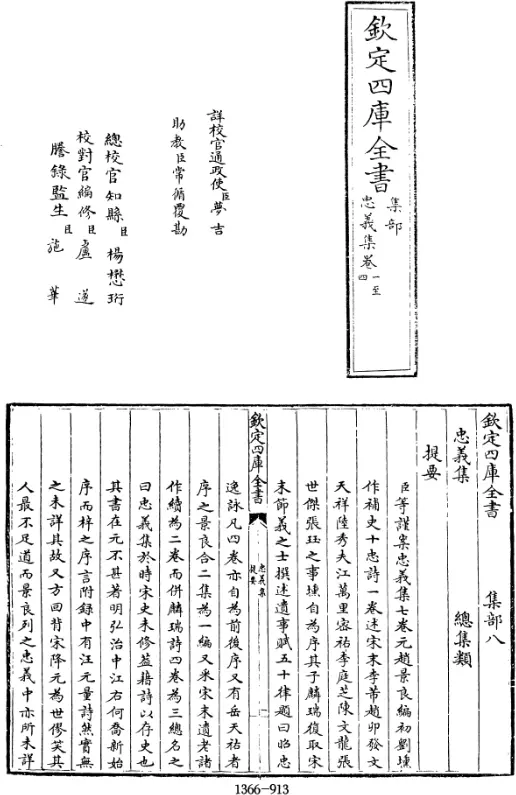 欽定四庫全書
集部
忠義集卷一至四
詳校官通政使臣夢吉
助教臣常循覆勘
總校官知縣臣楊懋珩
校對官編修臣盧遂
謄錄監生臣施華
欽定四庫全書 集部八
忠義集 總集類
提要
臣等謹案忠義集七卷元趙景良編初劉壎
作補史十忠詩一卷述宋末李芾趙卯發文
天祥陸秀夫江萬里密祐李庭芝陳文龍張
世傑張珏之事壎自為序其子麟瑞復取宋
末節義之士撰述遺事賦五十律題曰昭忠
欽定四庫全書 忠義集 提要 一
逸詠凡四卷亦自為前後序又有岳天祐者
序之景良合二集為一編又采宋末遺老諸
作續為二卷而併麟瑞詩四卷為三總名之
曰忠義集於時宋史未修蓋藉詩以存史也
其書在元不甚著明弘治中江右何喬新始
序而梓之序言附錄中有汪元量詩然實無
之未詳其故又方回背宋降元為世僇笑其
人最不足道而景良列之忠義中亦所未詳
1366-913